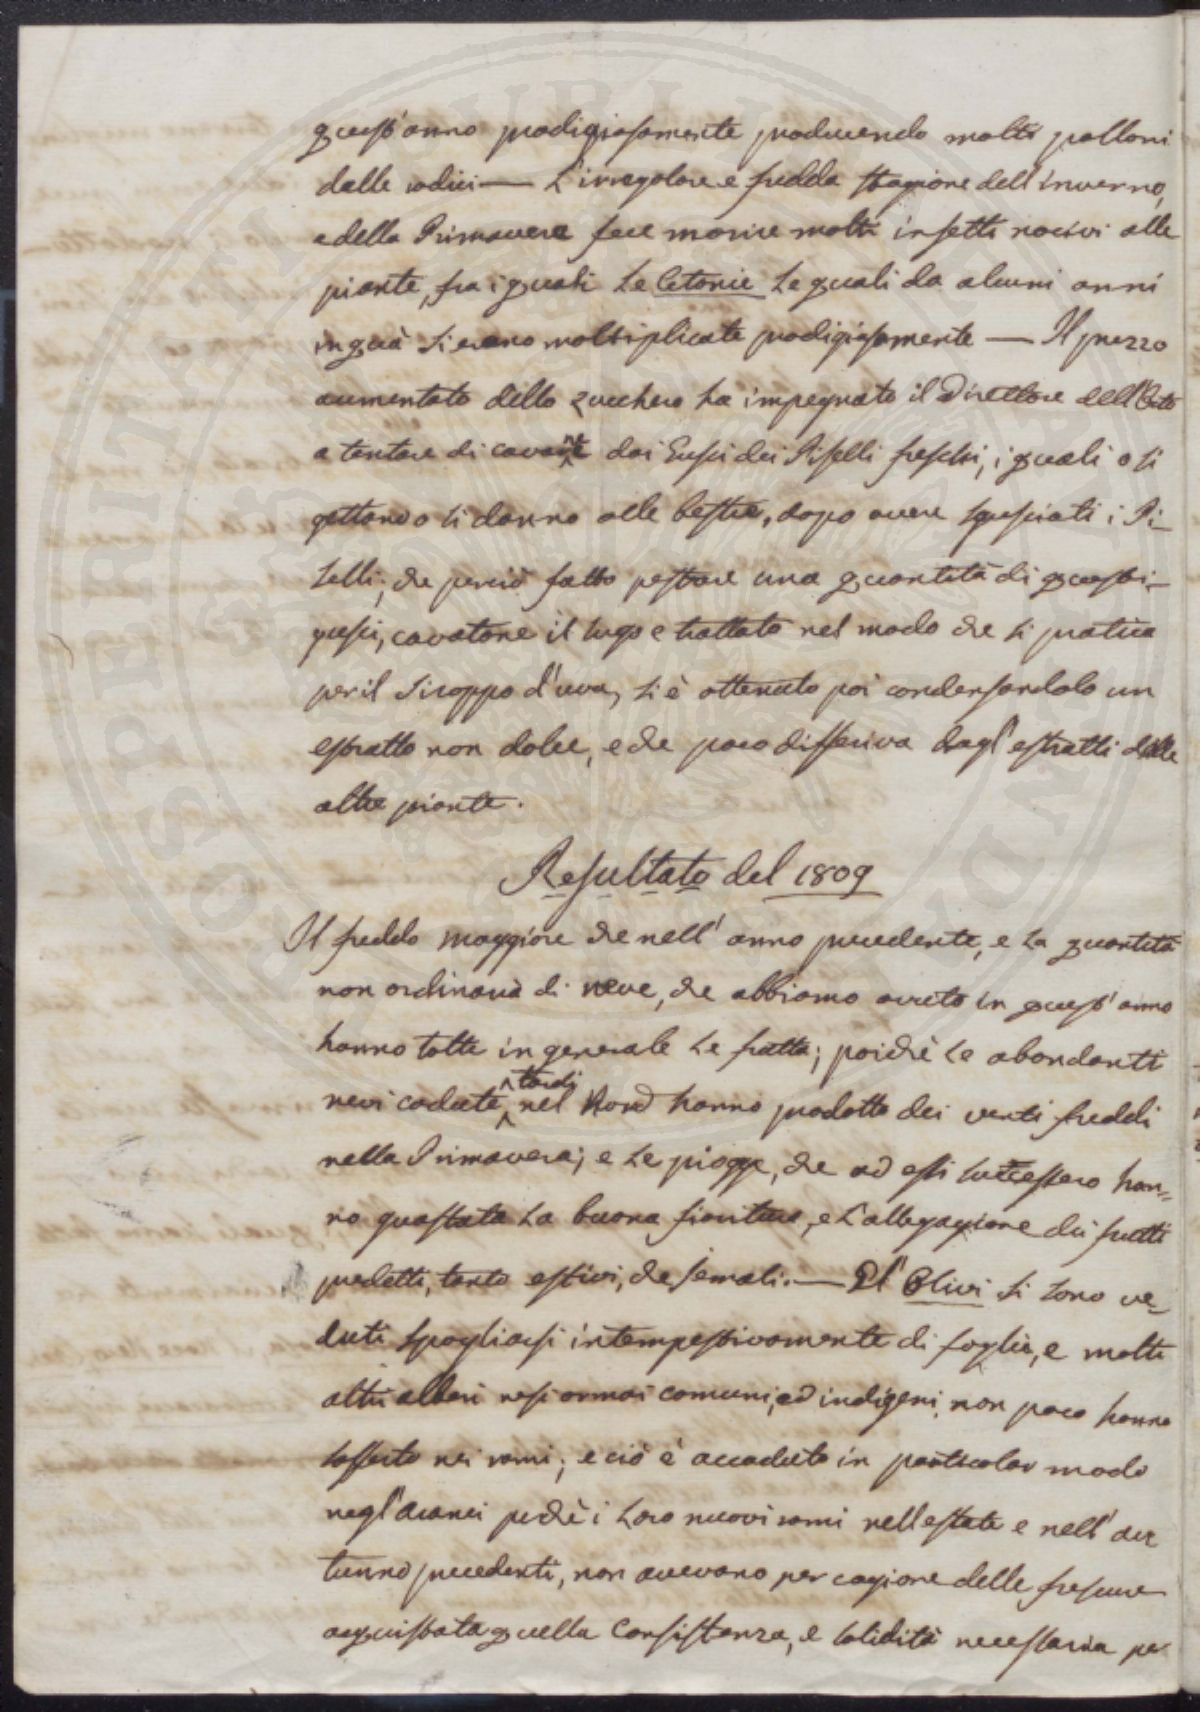 quest'anno prodigiosamente producendo molti polloni
dalle radici — L'irregolare e fredda stagione dell'inverno,
e della Primavera fece morire molti insetti nocivi alle
piante, fra i quali le Cetonie le quali da alcuni anni
in quà si erano moltiplicate prodigiosamente — Il prezzo
aumentato dello zucchero ha impegnato il Direttore dell'Orto
a tentare di cavarne dai Gusci dei Piselli freschi, i quali o si
gettano o si danno alle bestie, dopo avere sgusciati i Pi-
selli; che perciò fatto pestare una quantità di questi
gusci, cavatone il sugo e trattato nel modo che si pratica
per il Siroppo d'uva, si è ottenuto poi condensandolo un
estratto non dolce, e che poco differiva dagl'estratti delle
altre piante.
Resultato del 1809
Il freddo maggiore che nell'anno precedente, e la quantità
non ordinaria di neve, che abbiamo avuto in quest'anno
hanno tolte in generale le frutta; poichè le abondanti
nevi cadute tardi nel Nord hanno prodotto dei venti freddi
nella Primavera; e le piogge, che ad essi successero han-
no guastata la buona fioritura, e l'allegagione dei frutti
predetti, tanto estivi, che jemali. — Gl'Olivi si sono ve-
duti spogliarsi intempestivamente di foglie, e molti
altri alberi resi ormai comuni, ed indigeni non poco hanno
sofferto nei rami; e ciò è accaduto in particolar modo
negl'aranci perchè i loro nuovi rami nell'estate e nell'au
tunno precedenti, non avevano per cagione delle frescure
acquistata quella consistenza, e solidità necessaria per